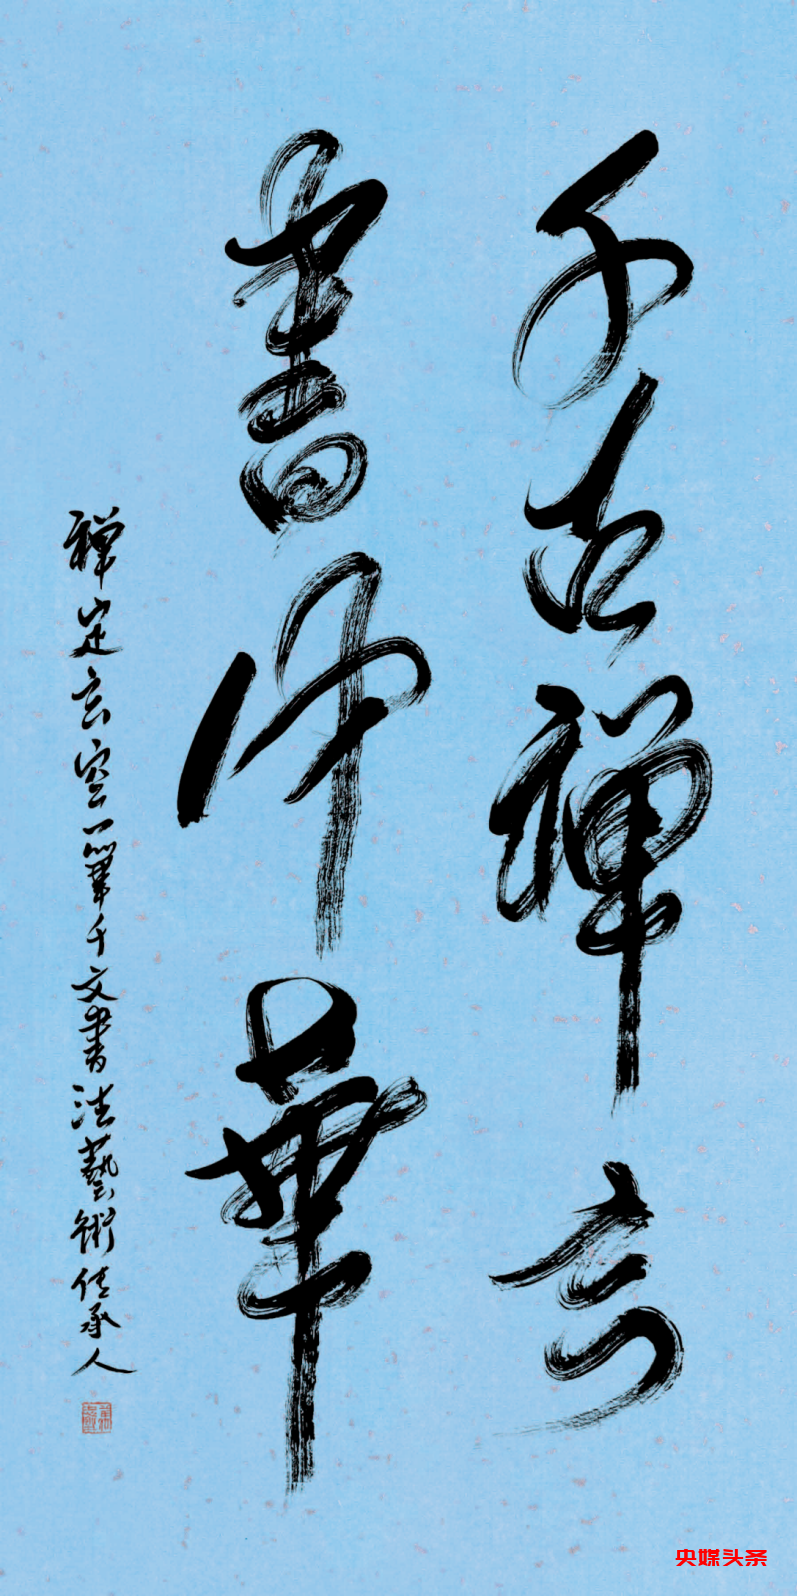 千古禪玄
書華
禪定玄空一筆千文書法藝術传承人
央媒头条